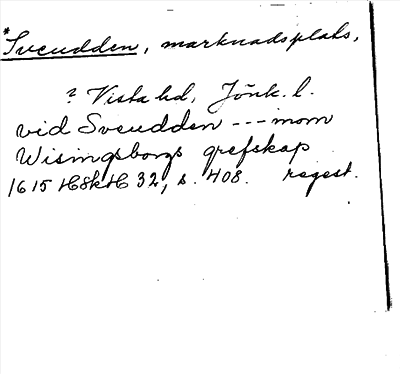 *Sveudden, marknadsplats,
? Vista hd, Jönk. l.
vid Sveudden --- inom
Wisingsborgs grefskap
1615 HSkH 32, s. 408. regest.